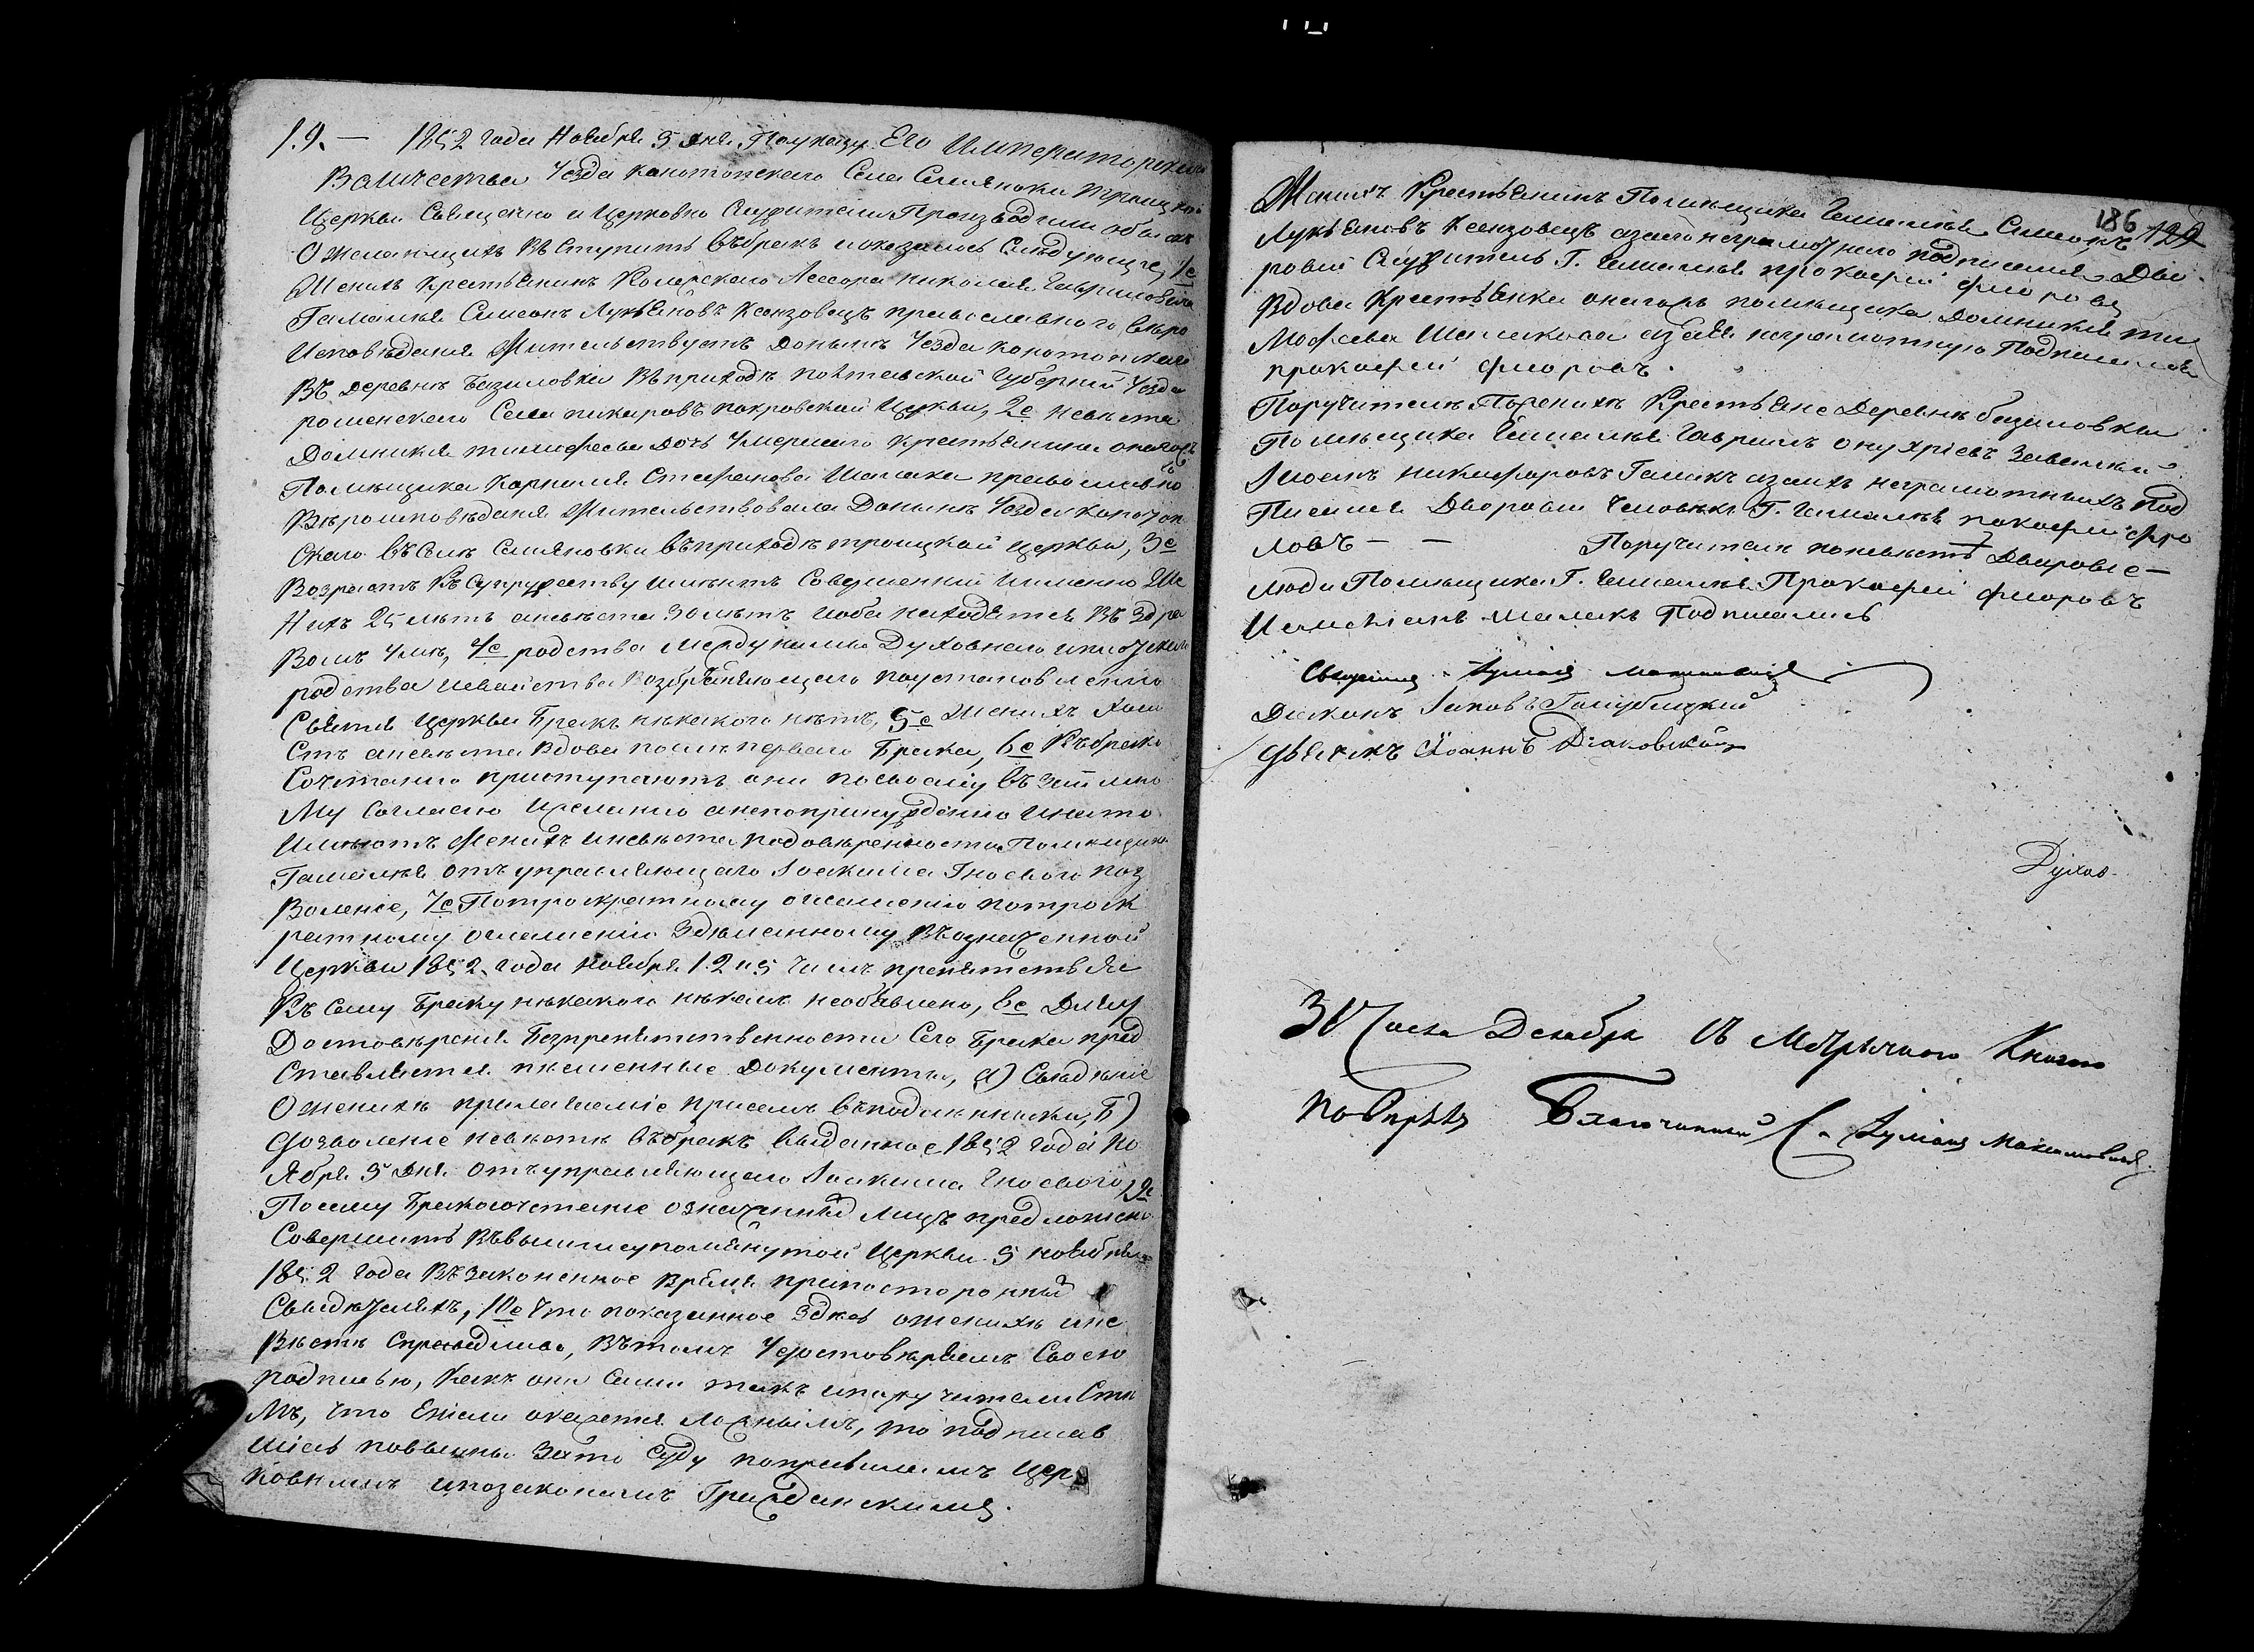 19. — 1852 года Ноября 5 дня. По указу Его Императорскаго
Величества Уезда Конотопского Села Смяновки Троицкой
Церкви Священно и Церковно Служители Производили обыскъ
О желающихъ Вступить въ бракъ и оказалось Следующее, 1е
Женихъ Крестьянинъ Колежского Асесора Николая Гавриловича
Гамалѣя Симеонъ Лукьяновъ Ксензовецъ православнаго вѣро
Исповѣданія Жительствуетъ Донынѣ Уезда Конотопского
Въ деревнѣ Базиловки Въ приходѣ Полтавской Губерніи Уезда
роменского Села Покровской Церкви, 2е невѣста
Домникія Тимофеева Дочь Умершаго Крестьянина
Помѣщика Корнилія Стефанова Шамака православно
Вѣроисповѣданія Жительствовала Донынѣ Уезда Конотоп
ского въ Селѣ Смяновки въ приходѣ Троицкой Церкви, 3е
Возрастъ Къ Супружеству имѣютъ Совершенный именно Же
нихъ 25 лѣтъ а невѣста 30 лѣтъ и оба находятся Въ Здра
вомъ Умѣ, 4е родства Между ними Духовнаго и плотскаго
родства и свойства Возбраняющаго по установленію
Святыя Церкви Бракъ никакого нѣтъ, 5е Женихъ Холо
Стъ а невѣста Вдова послѣ перваго Брака, 6е Къ брако
Сочетанію приступаютъ они по своему взаимно
Му Согласію и желанію а не по принужденію и на то
имѣютъ Женихъ и невѣста по довѣренности Помѣщика
Гамалѣя отъ управляющаго Иоакима Гноевого поз
Воленіе, 7е По троекратному оглашенію по троек
ратному оглашенію Здѣланному Въ означенной
Церкви 1852 года Ноября 1. 2 и 5 Числъ препятствія
Къ Сему Браку никакого никемъ необявлено, 8е Для у
Достовѣренія Безпрепятственности Сего Брака пред
Ставляется писменные Документы, а) Свидѣніе
О женихѣ прилагаеміе при семъ въ подлинники, Б)
Дозволеніе невѣсти въ бракъ выданное 1852 года но
ября 5 дня отъ управляющаго Иоакима Гноевого, 9е
Посему Бракосочетаніе означенныхъ Лицъ предложено
Совершить Въ вышеупомянутой Церкви 5 ноября
1852 года Въ Законенное Время при посторонныхъ
Свидѣтеляхъ, 10е Что показанное Здѣсь о женихѣ и не
Вѣстѣ Справедливо, Въ томъ Удостовѣряемъ Своею
подписью, Какъ они Сами такъ и поручители Стѣ
Мъ, что Ежели окажется Ложнымъ, то подписав
шіесь повынны За то Суду по правиламъ Цер
ковнымъ и по законамъ Гражданскимъ.
186
Женихъ Крестьянинъ Помѣщика Гамалѣя Симеонъ
Лукьяновъ Ксензовецъ а за его неграмотнаго подписался Дво
ровій Служитель Г. Гамалѣя Прокофій Флоровъ
Вдова Крестьянка онагожъ помѣщика Домникія Ти
Мофеева Шамакова а за ея неграмотную Подписался
Прокофій Флоровъ.
Поручители По женихѣ Крестьяне Деревнѣ базиловки
Помѣщика Гамалѣя Гаврилъ Онуфріевъ
Никифоровъ Гамакъ а за ихъ неграмотныхъ под
Писался Дворовий Человѣкъ Г. Гамалѣя Покофій Фло
ровъ — — Поручители по невѣстѣ Дворовіе —
Люди Помѣщика Г. Гамалѣя Прокофій Флоровъ
Шамакъ Подписались
Священникъ Максимовичъ
Дьяконъ Іаковъ Голубицкій
Дьячекъ Іоаннъ Діаковскій
Духов.
31 Числа Декабря Съ Метрычною Книгою
по Вѣрялъ Благочинный С. Максимовичъ.